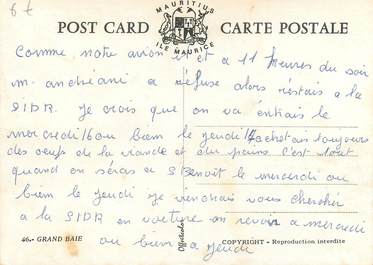 6 t
MAURITIUS
ILE MAURICE
POST CARD CARTE POSTALE
Comme notre avion et a 11 heures du soir
m. andréani a réfusé alors réstais a la
SIDR. je crois que on va entrais le
mercredi 16 ou bien le jeudi 17 achetais toujours
des oeufs de la viande et du pains c'est tout
quand en séras a St Benoît le mercerdi ou
bien le jeudi je viendrais vous chercher
a la SIDR en voiture au revoir a mercredi
ou bien a jeudi
46.- GRAND BAIE
COPYRIGHT - Reproduction interdite